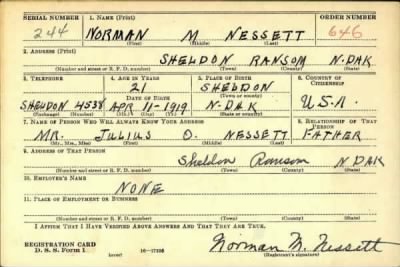 SERIAL NUMBER 1. NAME (Print) ORDER NUMBER
244 NORMAN M NESSETT 646
(First) (Middle) (Last)
2. ADDRESS (Print)
SHELDON RANSOM N-DAK
(Number and street or R. F. D. number) (Town) (County) (State)
3. TELEPHONE 4. AGE IN YEARS 5. PLACE OF BIRTH 6. COUNTRY OF CITIZENSHIP
21 SHELDON
(Town or county)
DATE OF BIRTH
SHELDON 4538 APR 11-1919 N-DAK U.S.A.
(Exchange) (Number) (Mo.) (Day) (Yr.) (State or country)
7. NAME OF PERSON WHO WILL ALWAYS KNOW YOUR ADDRESS 8. RELATIONSHIP OF THAT PERSON
MR. JULIUS O. NESSETT FATHER
(Mr., Mrs., Miss) (First) (Middle) (Last)
9. ADDRESS OF THAT PERSON
Sheldon Ransom N DAK
(Number and street or R. F. D. number) (Town) (County) (State)
10. EMPLOYER'S NAME
NONE
11. PLACE OF EMPLOYMENT OR BUSINESS
(Number and street or R. F. D. number) (Town) (County) (State)
I AFFIRM THAT I HAVE VERIFIED ABOVE ANSWERS AND THAT THEY ARE TRUE.
REGISTRATION CARD
D. S. S. Form 1 (over) Norman M. Nessett